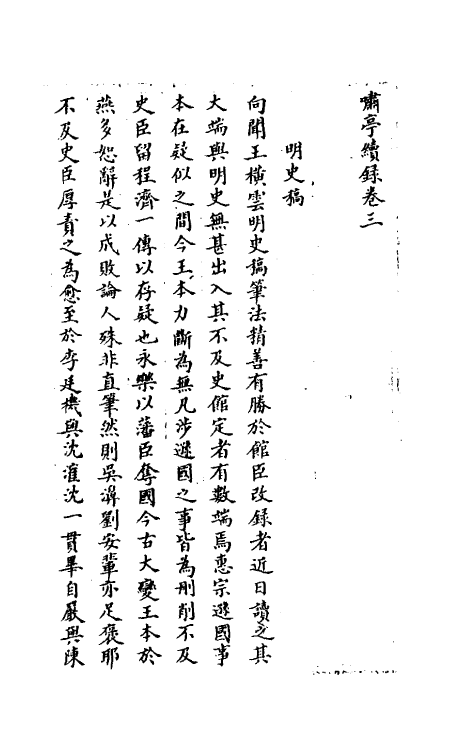 嘯亭續錄卷三
明史稿
向聞王橫雲明史稿筆法精善有勝於館臣改錄者近日讀之其
大端與明史無甚出入其不及史館定者有數端焉惠宗遜國事
本在疑似之間今王本力斷為無凡涉遜國之事皆為刑削不及
史臣留程濟一傳以存疑也永樂以藩臣奪國今古大變王本於
燕多恕辭是以成敗論人殊非直筆然則吳濞劉安輩亦足褒耶
不及史臣厚責之為愈至於李廷機與沈㴶沈一貫畢自嚴與陳